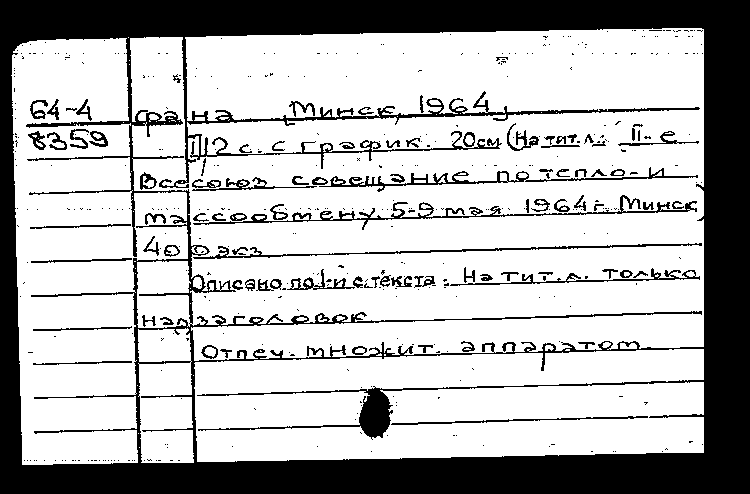 64-4
8359
франа [Минск, 1964]
12 с. с график. 20см (На тит.л.: II-е
Всесоюз совещание по тепло-и
массообмену. 5-9 мая 1964г. Минск)
400экз
Описано по 1-й с.текста. На тит.л. только
надзаголовок
Отпеч. множит. аппаратом.